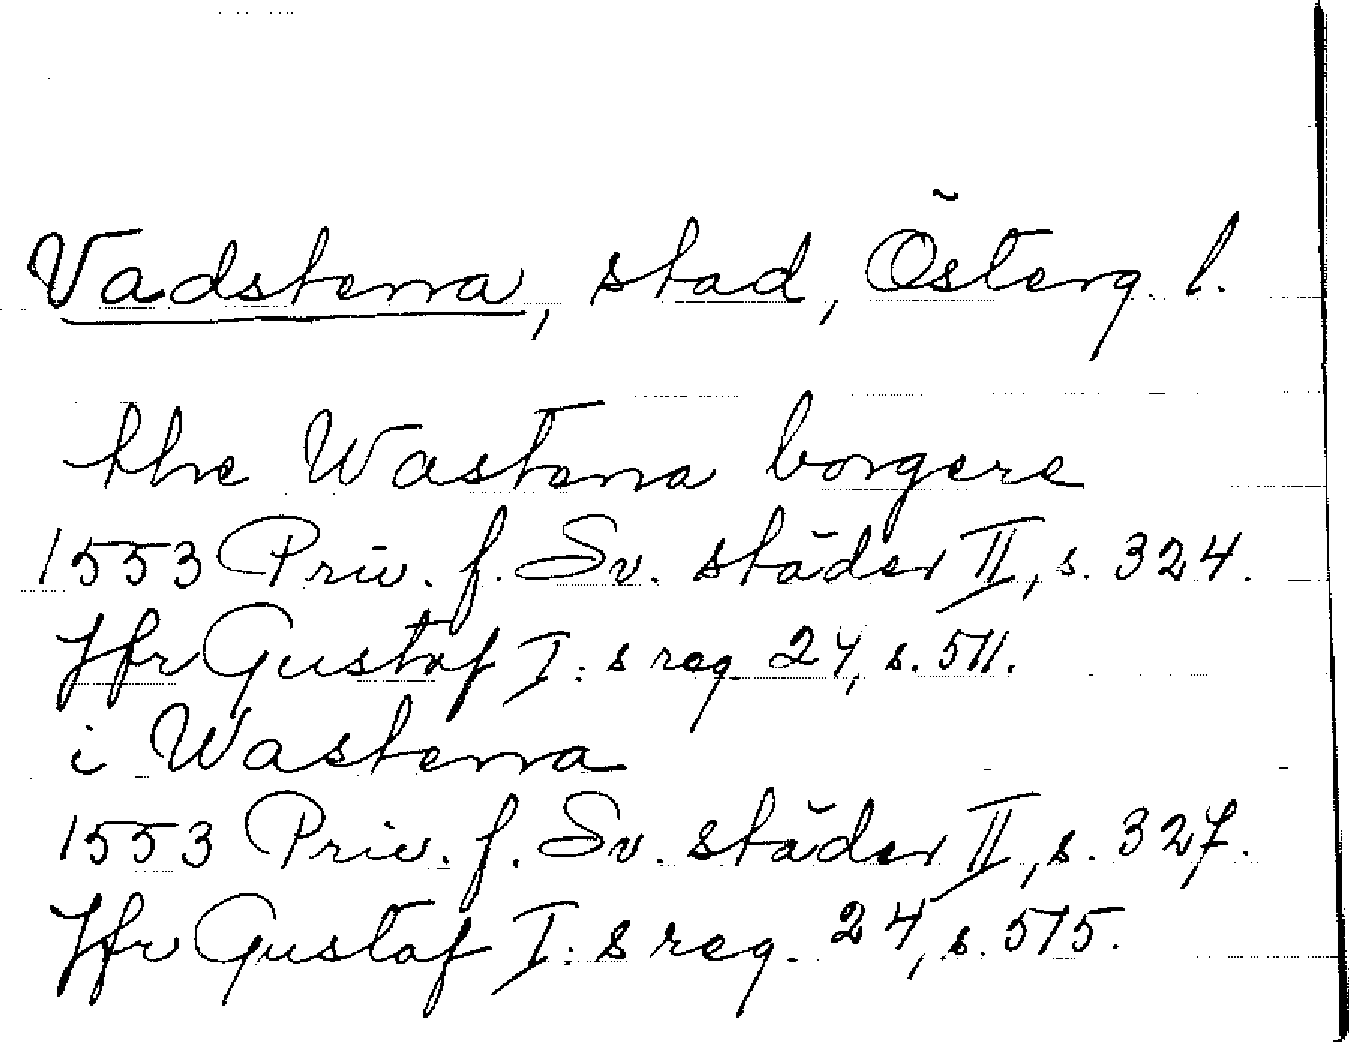 Vadstena, stad, Österg. l.
the Wastena borgere
1553 Priv. f. Sv. städer II, s. 324.
Jfr Gustaf I: s reg 24, s. 511.
i Wastena
1553 Priv. f. Sv. städer II, s. 327.
Jfr Gustaf I: s reg. 24, s. 515.